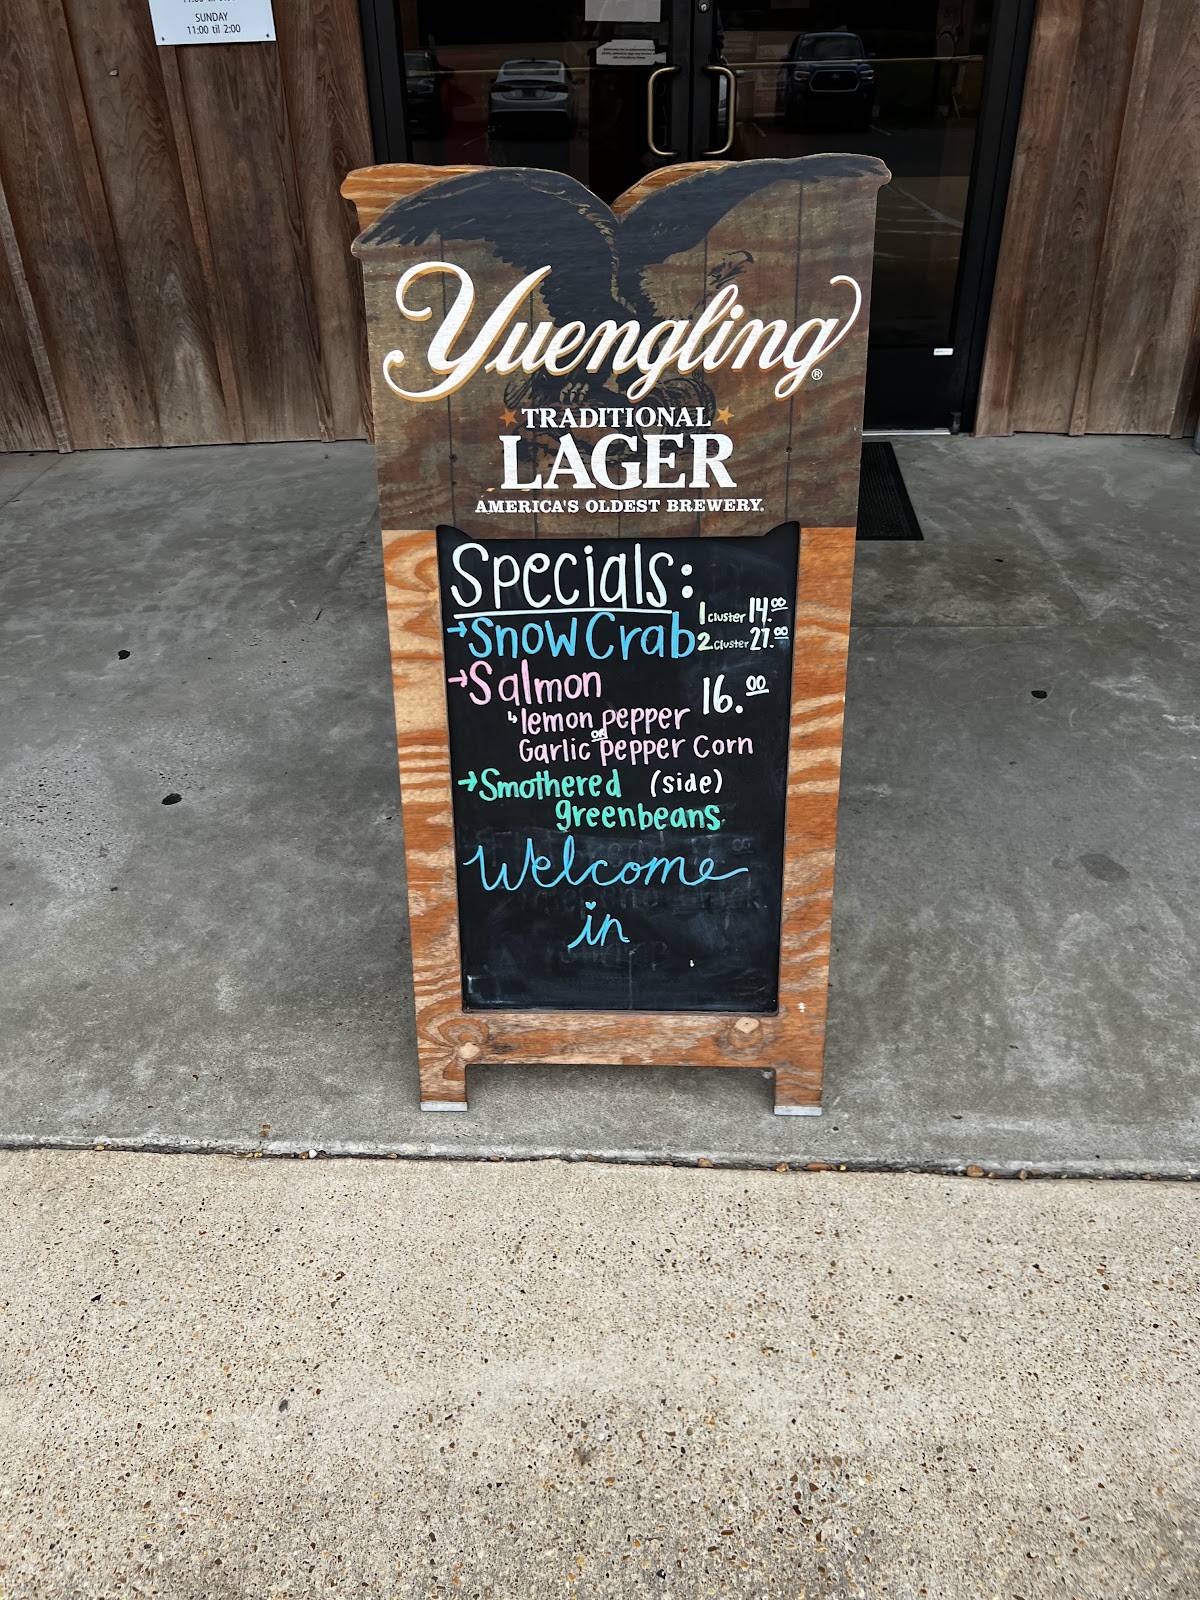 SUNDAY
11:00 til 2:00
Yuengling®
TRADITIONAL
LAGER
AMERICA'S OLDEST BREWERY.
Specials:
→Snow Crab 1 cluster 14.00
2 cluster 27.00
→Salmon 16.00
↳lemon pepper
or
Garlic pepper Corn
→Smothered (side)
greenbeans
Welcome
in